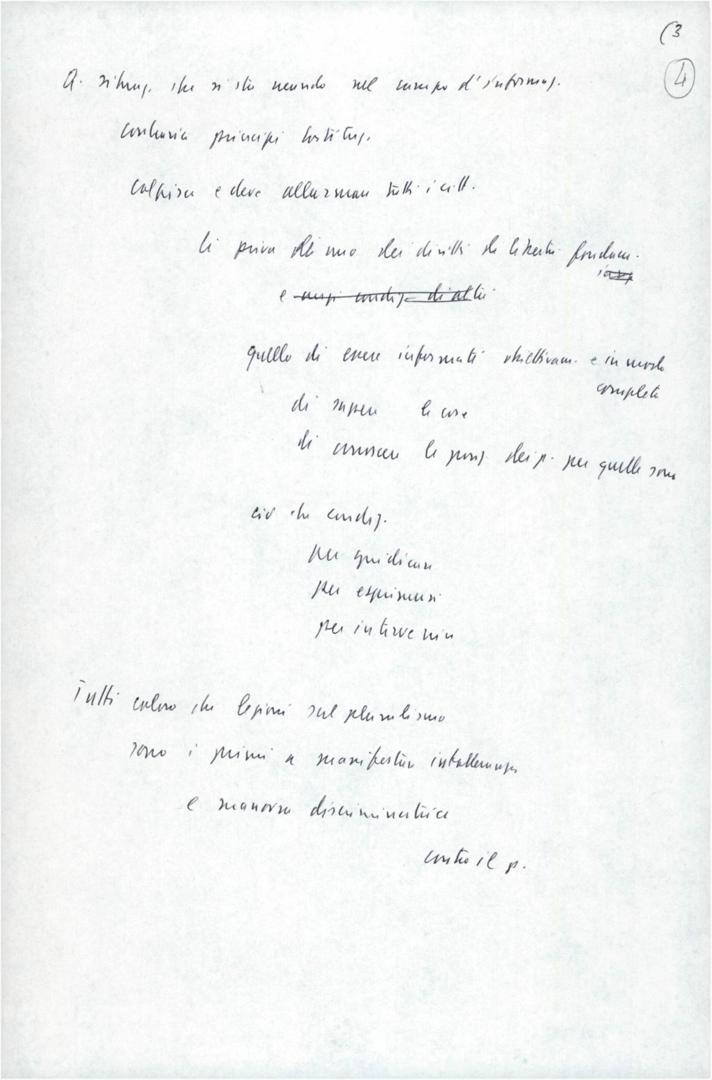 (3
4
Q. situaz. che si sta creando nel campo d'informaz.
contraria principi costituz.
colpisce e deve allarmare tutti i citt.
li priva di uno dei diritti di libertà fondam.
e anzi condiz. di altri
quello di essere informati obiettivam. e in modo
completo
di sapere le cose
di conoscere le posiz. dei p. per quelle sono
ciò che condiz.
per giudicare
per esprimersi
per intervenire
Tutti coloro che lezioni sul pluralismo
sono i primi a manifestare intolleranza
e manovra discriminatrice
contro il p.